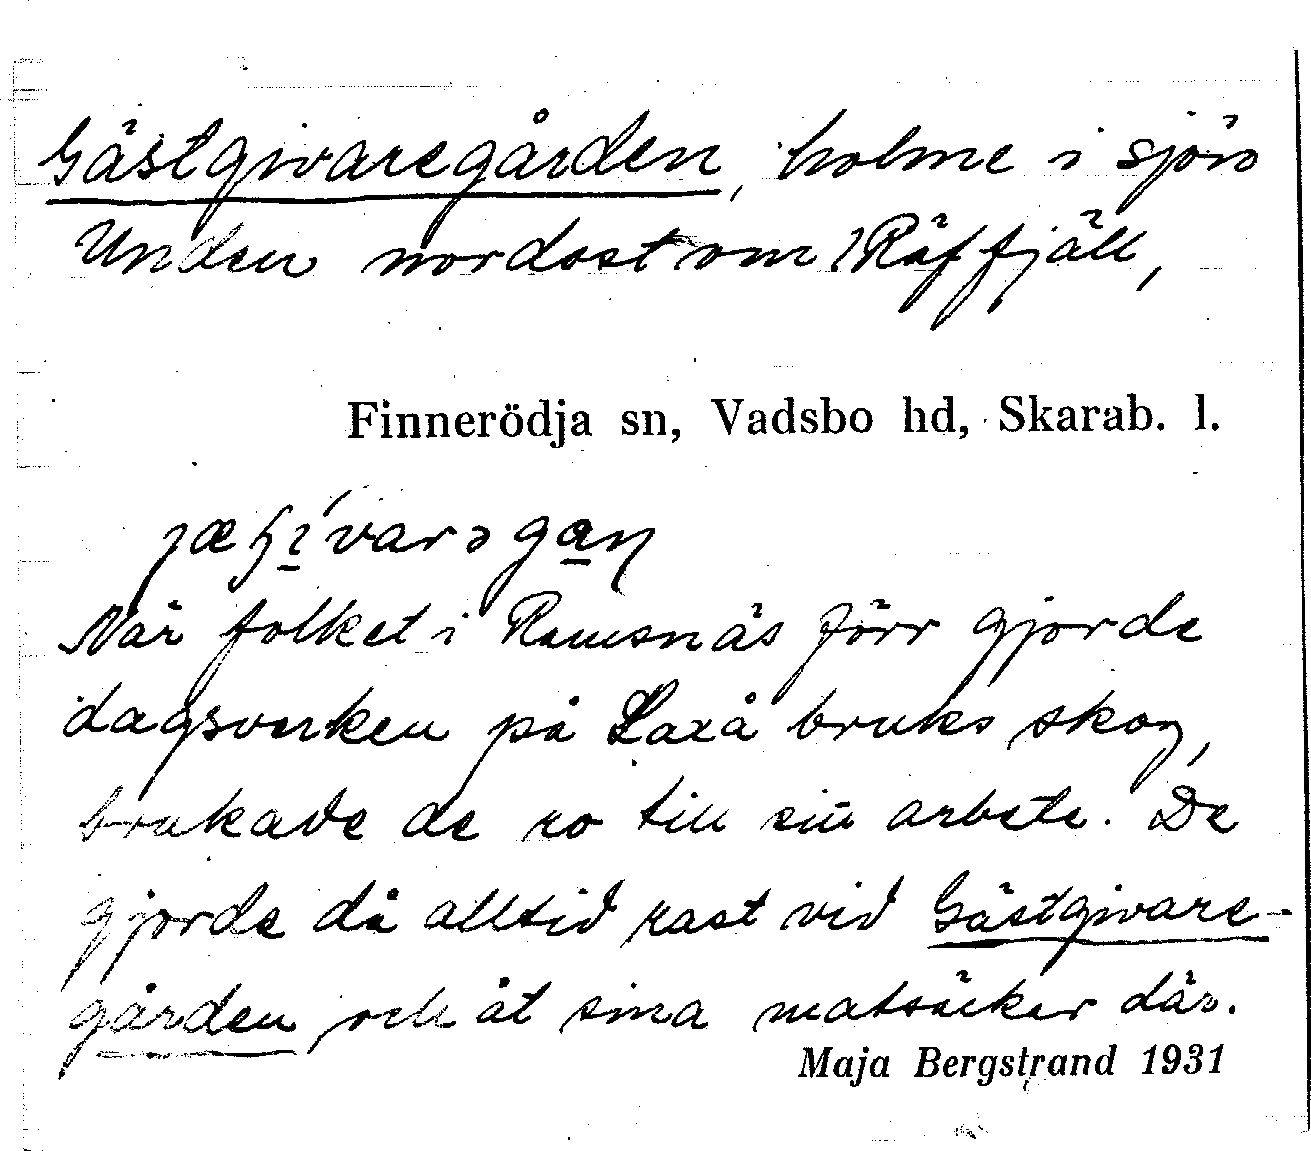 Gästgivaregården, holme i sjön
Unden nordost om Räffjäll,
Finnerödja sn, Vadsbo hd, Skarab. l.
När folket i Ramsnäs förr gjorde
dagsverken på Laxå bruks skog,
brukade de ro till sitt arbete. De
gjorde då alltid rast vid Gästgivare-
gården och åt sina matsäckar där.
Maja Bergstrand 1931